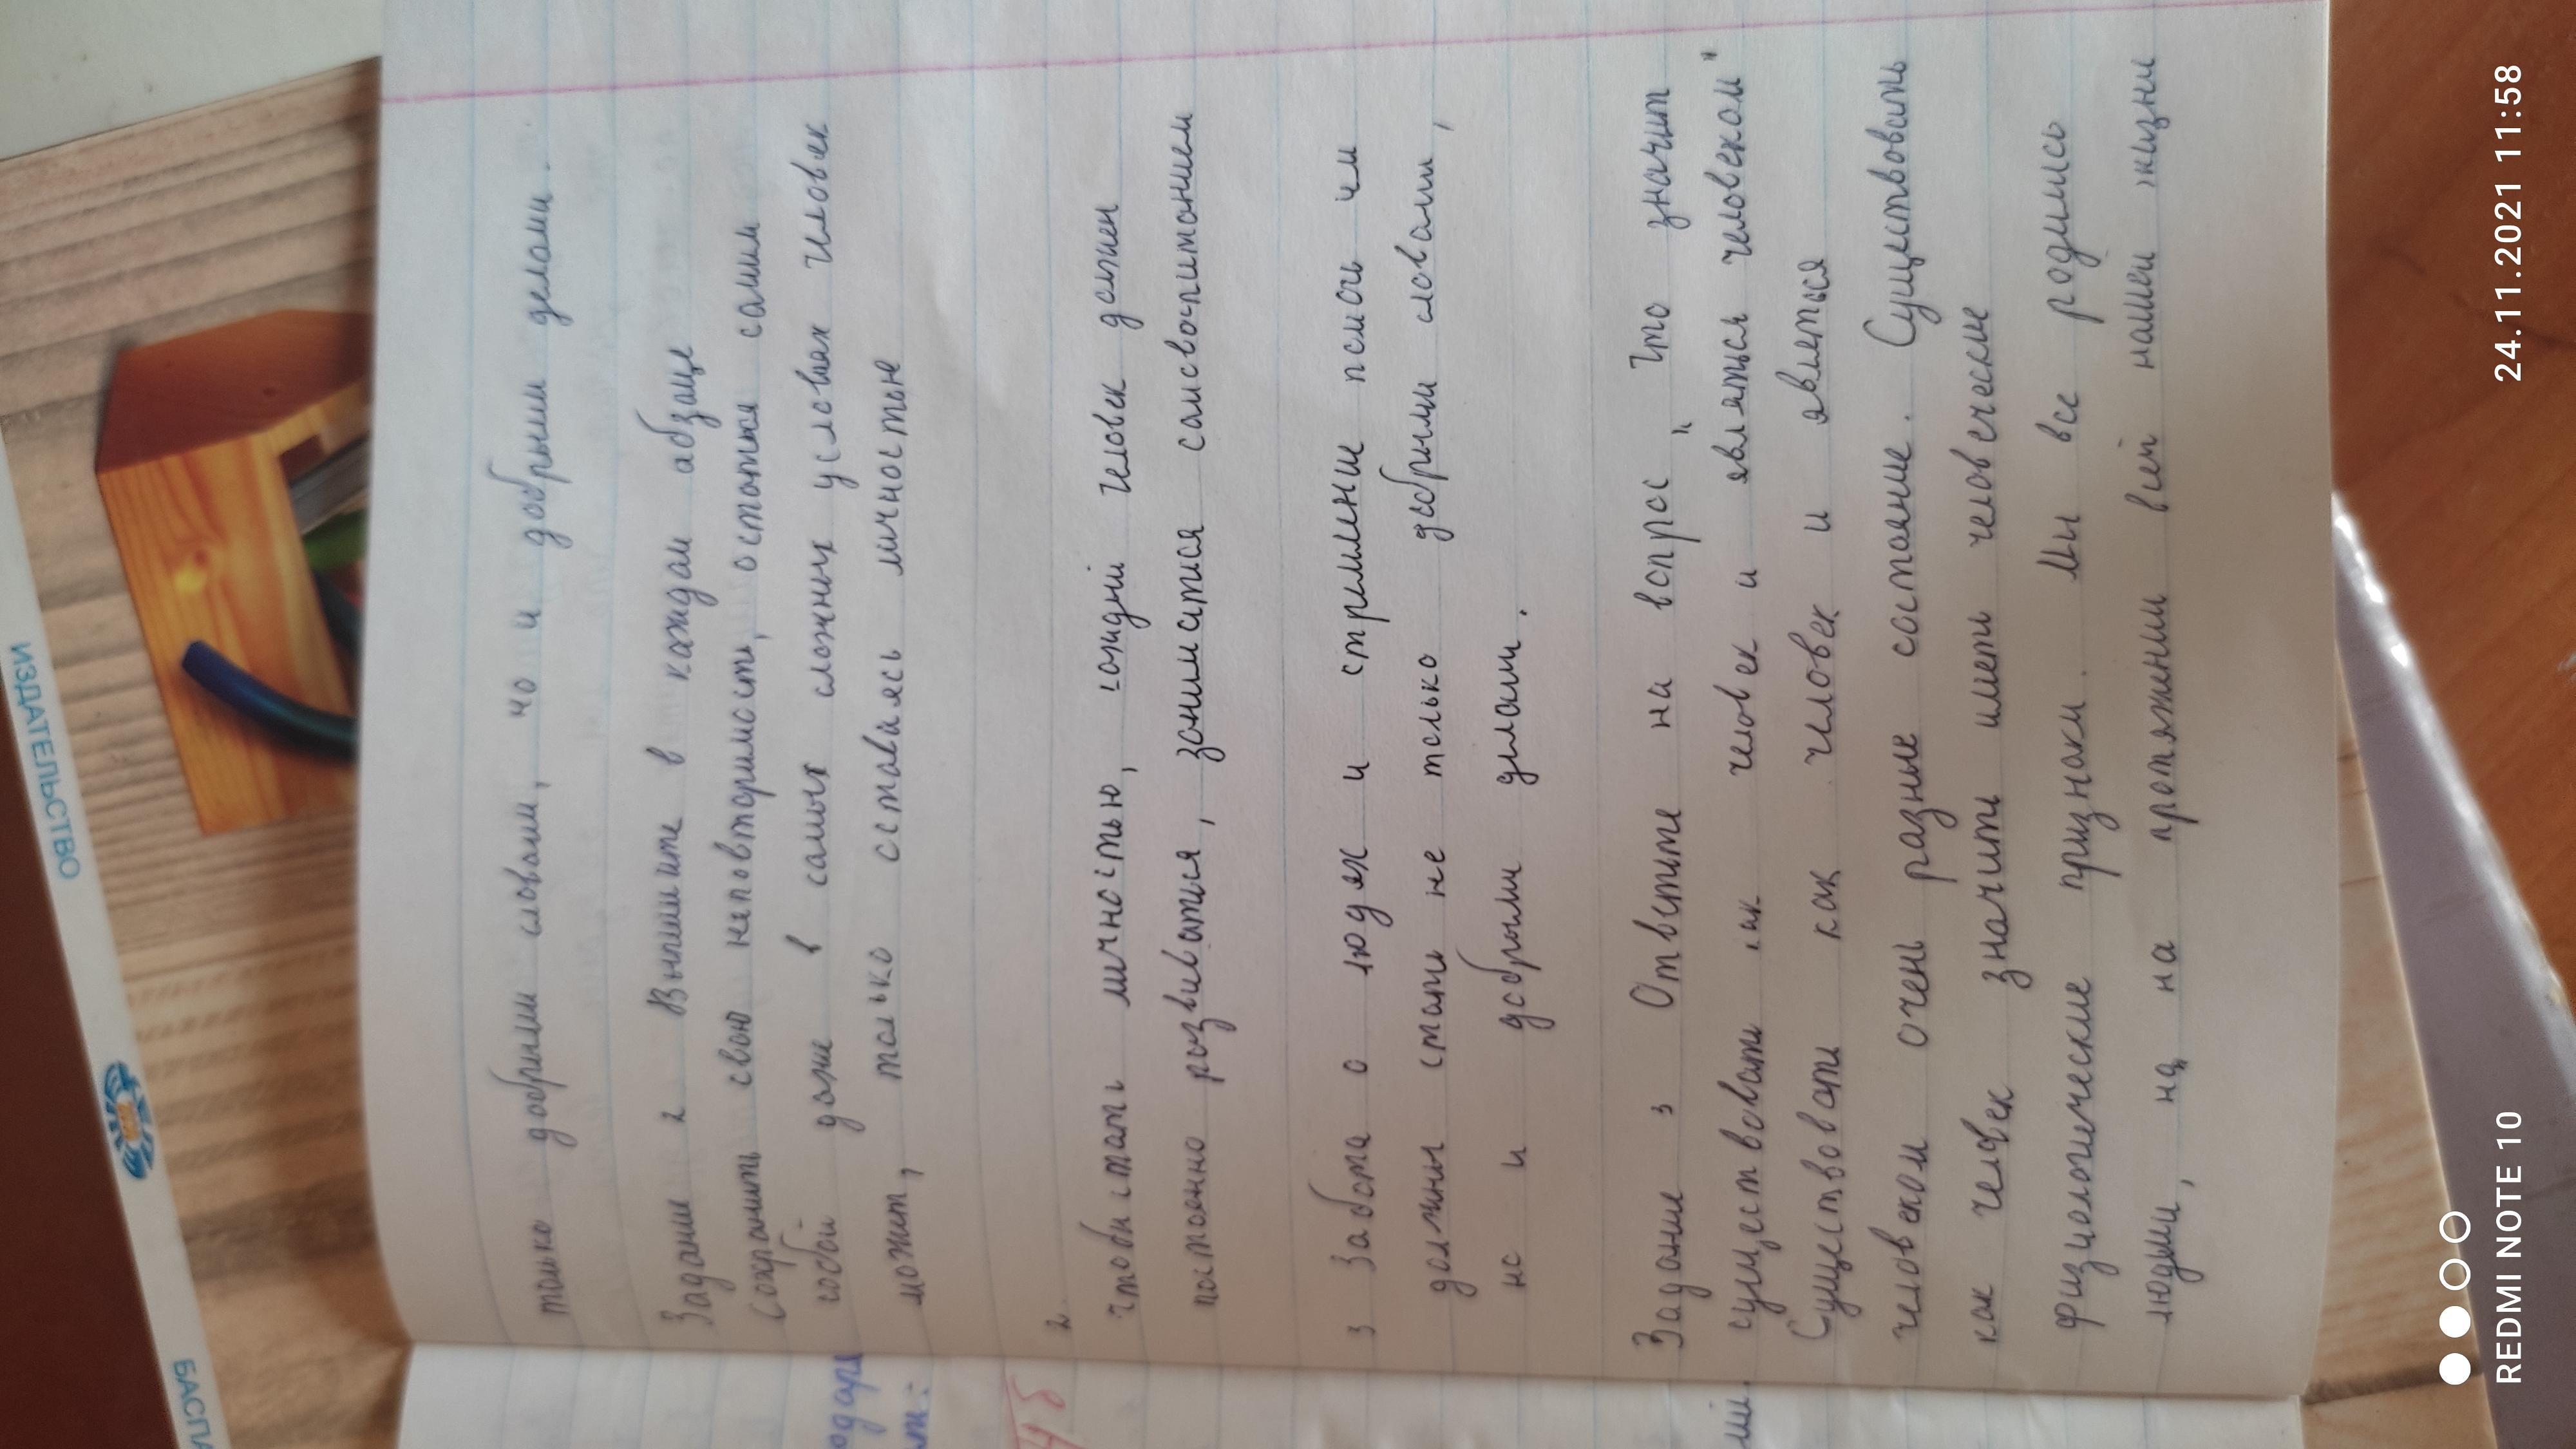 только добрыми словами, но и добрыми делами.
Задание 2 Выпишите в каждом абзаце
Сохранить свою неповторимость, остатся самим
собой даже в самых сложных условиях человек
может, только оставаясь личностье
2
Чтобы стать личностью, каждый человек должен
постоянно развиваться, заниматся самовоспитанием
3 Забота о людях и стремление помочь им
должны стать не только добрыми словами,
но и добрыми делами.
Задание 3 Ответите на вопрос „Что значит
существовать как человек и „являться человеком"
Существовать как человек и являться
человеком очень разные состояние. Существовать
как человек значить иметь человеческие
физиологические признаки. Мы все родились
людьми, но на протяжении всей нашей жизни
ИЗДАТЕЛЬСТВО
REDMI NOTE 10
24.11.2021 11:58